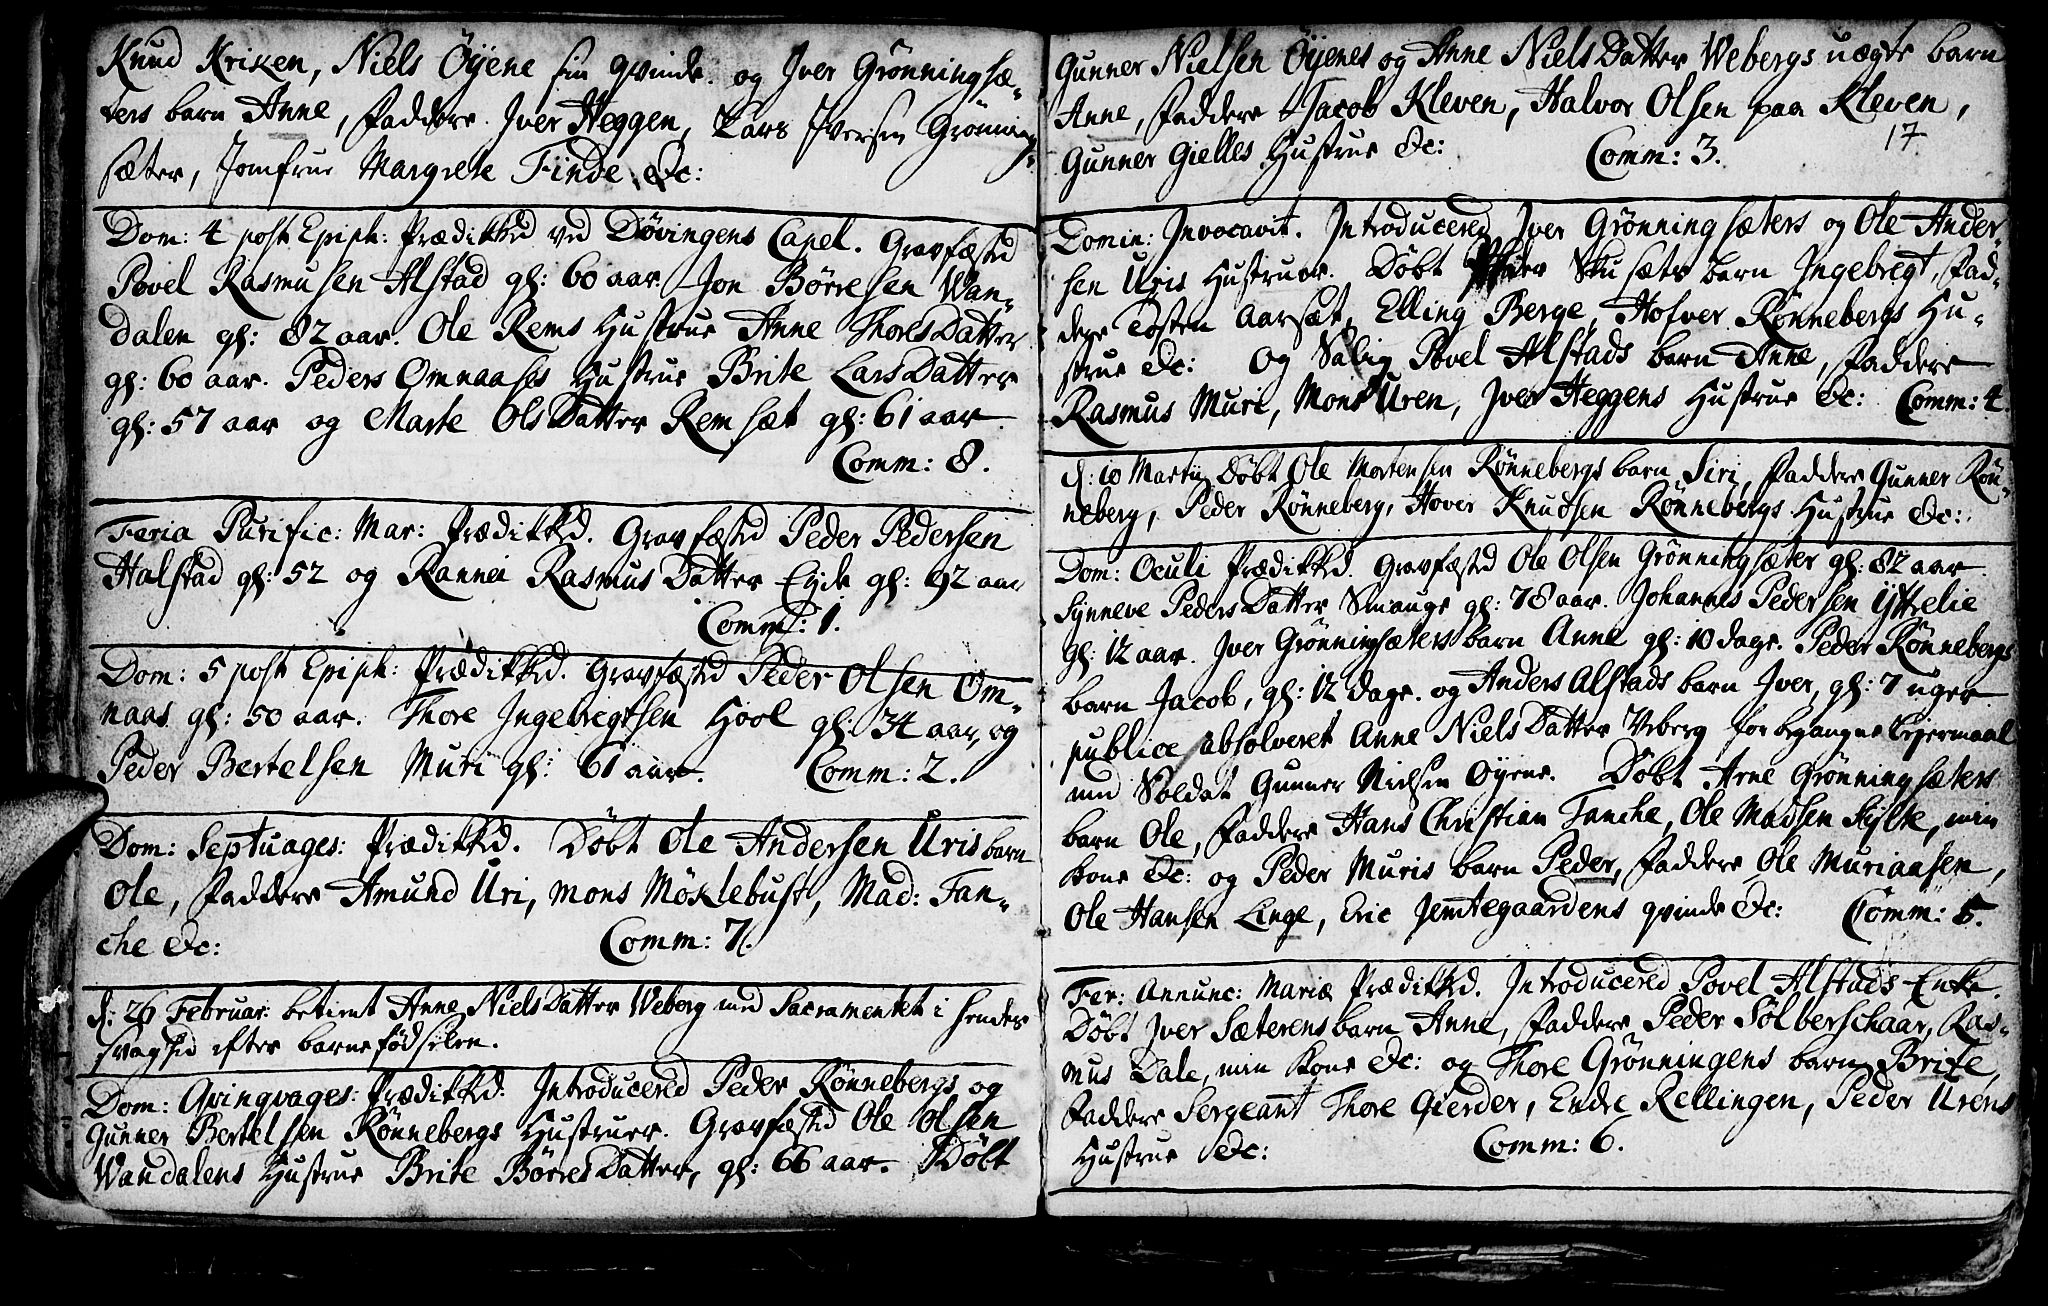 Knud Kriken, Niels Öyene sin qvinde. og Iver Grønningsæ-
ters barn Anne, Faddere. Iver Heggen, Lars Iversen Grönning-
sæter, Jomfrue Margrete Finde &c:
Dom: 4 post Epiph: Prædikked ved Døvingens Capel. Gravfæsted
Povel Rasmussen Alstad gl: 60 aar. Jon Börresen Wan-
dalen gl: 82 aar. Ole Rems Hustrue Anne ThoresDatter
gl: 60 aar. Peders Omnaases Hustrue Brite LarsDatter
gl: 57 aar og Marte OlsDatter Remsæt gl: 61 aar.
Comm: 8.
Feria Purific: Mar: Prædikked. Gravfæsted Peder Pedersen
Halstad gl: 52 og Rannei RasmusDatter Eyde gl: 92 aar
Comm: 1.
Dom: 5 post Epiph: Prædikked. Gravfæsted Peder Olsen Om-
naas gl: 50 aar. Thore Ingebregtsen Hool gl: 34 aar, og
Peder Bertelsen Muri gl: 61 aar. Comm: 2.
Dom: Septuages: Prædikked. Döbt Ole Andersen Uris barn
Ole, Faddere Amund Uri, Mons Möklebust, Mad: Fan-
che &c: Comm: 7.
d: 26 Februar: betient Anne NielsDatter Weberg med Sacramentet i hendes
svaghed efter barnefödselen.
Dom: Qvinqvages: Prædikked. Introducered Peder Rönnebergs og
Gunner Bertelsen Rönnebergs Hustruer. Gravfæsted Ole Olsen
Wandalens Hustrue Brite BörresDatter, gl: 66 aar. Döbt
Gunner Nielsen Öyenes og Anne NielsDatter Webergs uægte barn
Anne, Faddere Jacob Kleven, Halvor Olsen paa Kleven,
17
Gunner Gielles Hustrue &c: Comm: 3.
Domin: Invocavit. Introducered Iver Grønningsæters og Ole Ander-
sen Uris Hustruer. Döbt Skusets barn Ingebregt, Fad-
dere Tosten Aarsæt, Elling Berge, Hofver Rønnebergs Hu-
strue &c: Og Salig Povel Alstads barn Anne, Faddere
Rasmus Muri, Mons Uren, Iver Heggens Hustrue &c: Comm: 4.
d: 10 Martij Döbt Ole Mortensen Rönnebergs barn Siri, Faddere Gunner Rön-
neberg, Peder Rönneberg, Hover Knudsen Rönnebergs Hustrue &c:
Dom: Oculi Prædikked. Gravfæsted Ole Olsen Grönningsæter gl: 82 aar.
Synneve PedersDatter Smauge gl: 78 aar. Johannes Pedersen Yttrelie
gl: 12 aar. Iver Grönningsæters barn Anne gl: 10 dage. Peder Rönnebergs
barn Jacob, gl: 12 dage. og Anders Alstads barn Iver, gl: 7 uger
publice absolveret Anne NielsDatter Veberg for begangne Leyermaal
med Soldat Gunner Nielsen Öyene. Döbt Arne Grönningsæters
barn Ole, Faddere Hans Christian Fanche, Ole Madsen Sylte, min
Kone &c: og Peder Muris barn Peder, Faddere Ole Muriaasen,
Ole Hansen Linge, Eric Jemtegaardens qvinde &c: Comm: 5.
Fer: Annunc: Mariæ Prædikked. Introducered Povel Alstads Enke.
Döbt Iver Sæterens barn Anne, Faddere Peder Sölberschaar, Ras-
mus Dale, min Kone &c: og Thore Grønningens barn Brite,
Faddere Sergeant Thore Gierder, Endre Rellingen, Peder Urens
Hustrue &c: Comm: 6.